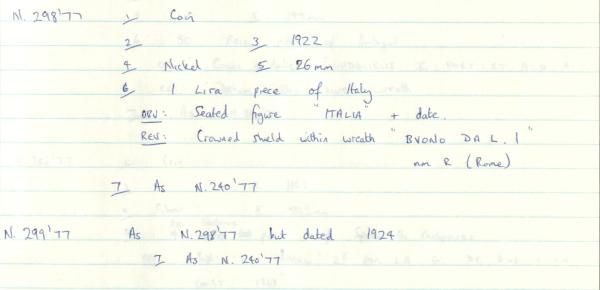 N. 298'77 1 Coin
2 3 1922
4 Nickel 5 26mm
6 1 Lira piece of Italy
OBV: Seated figure "ITALIA" + date.
REV: Crowned shield within wreath "BVONO DA L. 1"
mm R (Rome)
7 As N.240'77
N. 299'77 As N.298'77 but dated 1924
7 As N. 240'77